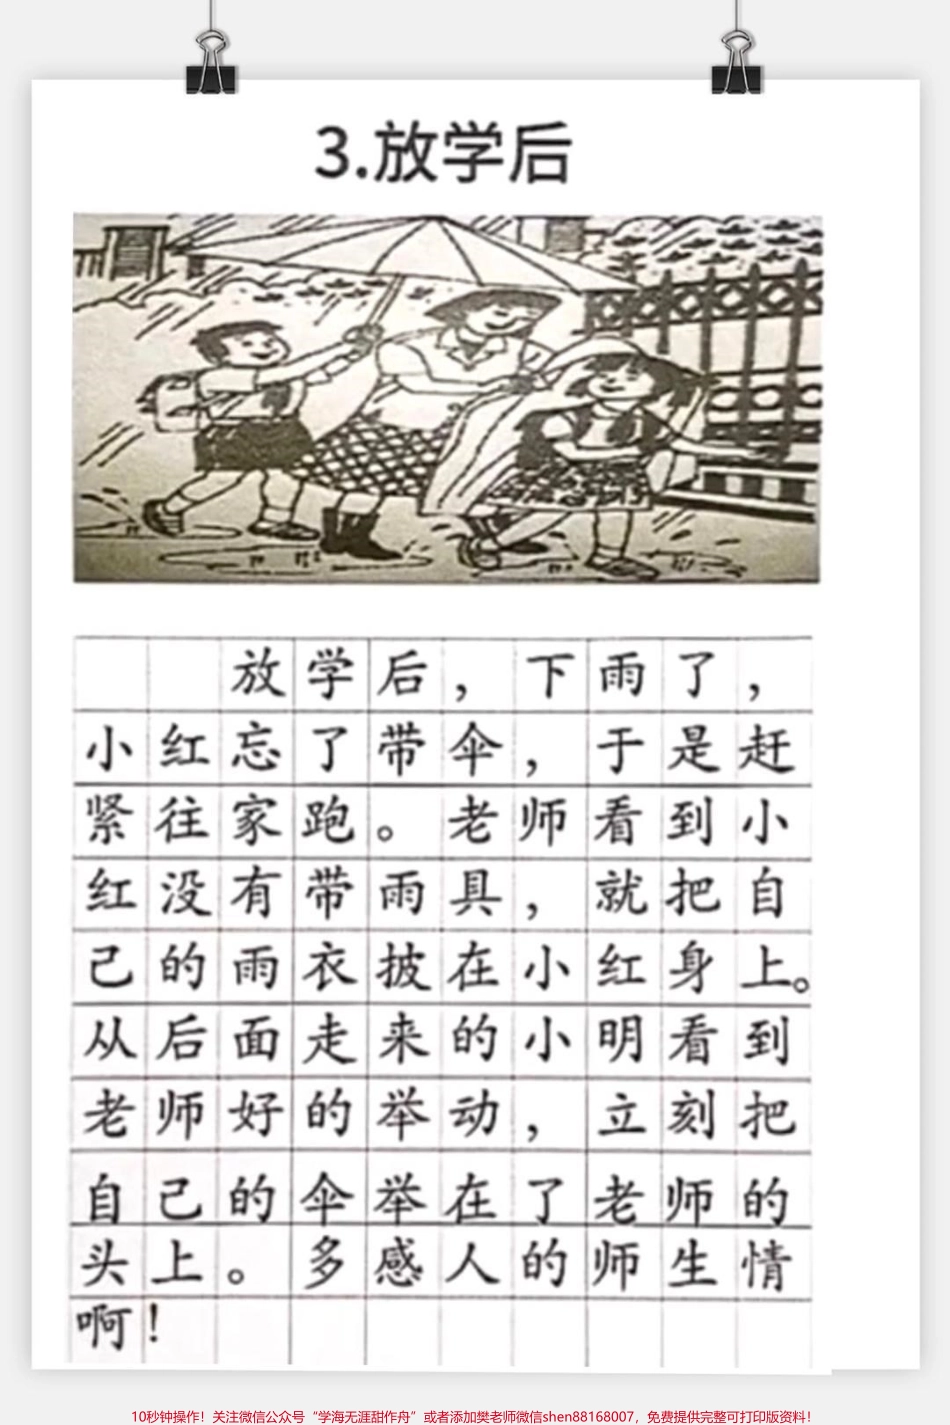 3.放学后
放学后，下雨了，
小红忘了带伞，于是赶
紧往家跑。老师看到小
红没有带雨具，就把自
己的雨衣披在小红身上。
从后面走来的小明看到
老师好的举动，立刻把
自己的伞举在了老师的
头上。多感人的师生情
啊！
10秒钟操作！关注微信公众号“学海无涯甜作舟”或者添加樊老师微信shen88168007，免费提供完整可打印版资料！